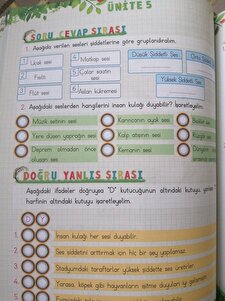 ÜNİTE 5
SORU CEVAP SIRASI
1. Aşağıda verilen sesleri şiddetlerine göre gruplandıralım.
1 Uçak sesi
4 Matkap sesi
2 Fısıltı
5 Çalar saatin sesi
3 Flüt sesi
6 Aslan kükremesi
Düşük Şiddetli Ses
Orta
Yüksek Şiddetli Ses
2. Aşağıdaki seslerden hangilerini insan kulağı duyabilir? İşaretleyelim.
Müzik setinin sesi
Karıncanın ayak sesi
Yere düşen yaprağın sesi
Kalp atışının sesi
Deprem olmadan önce oluşan ses
Kemanın sesi
DOĞRU YANLIŞ SIRASI
Aşağıdaki ifadeler doğruysa "D" kutucuğunun altındaki kutuyu,
harfinin altındaki kutuyu işaretleyelim.
D Y
1. İnsan kulağı her sesi duyabilir.
2. Ses şiddetini arttırmak için hiç bir şey yapılamaz.
3. Stadyumdaki taraftarlar yüksek şiddette ses üretirler.
4. Yarasa, köpek gibi hayvanların işitme duyuları iyi
5.